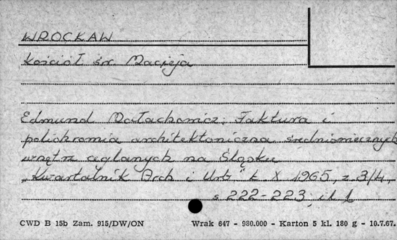 WROCŁAW
Kościół św. Macieja
Edmund Małachowicz: Faktura i
polichromia architektoniczna średniowiecznych
wnętrz ceglanych na Śląsku
„Kwartalnik Arch i Urb" t. X 1965, z 3/4,
s 222-223, il 1
CWD B 15b Zam. 915/DW/ON Wrak 647 - 980.000 - Karton 5 kl. 180 g - 10.7.67.